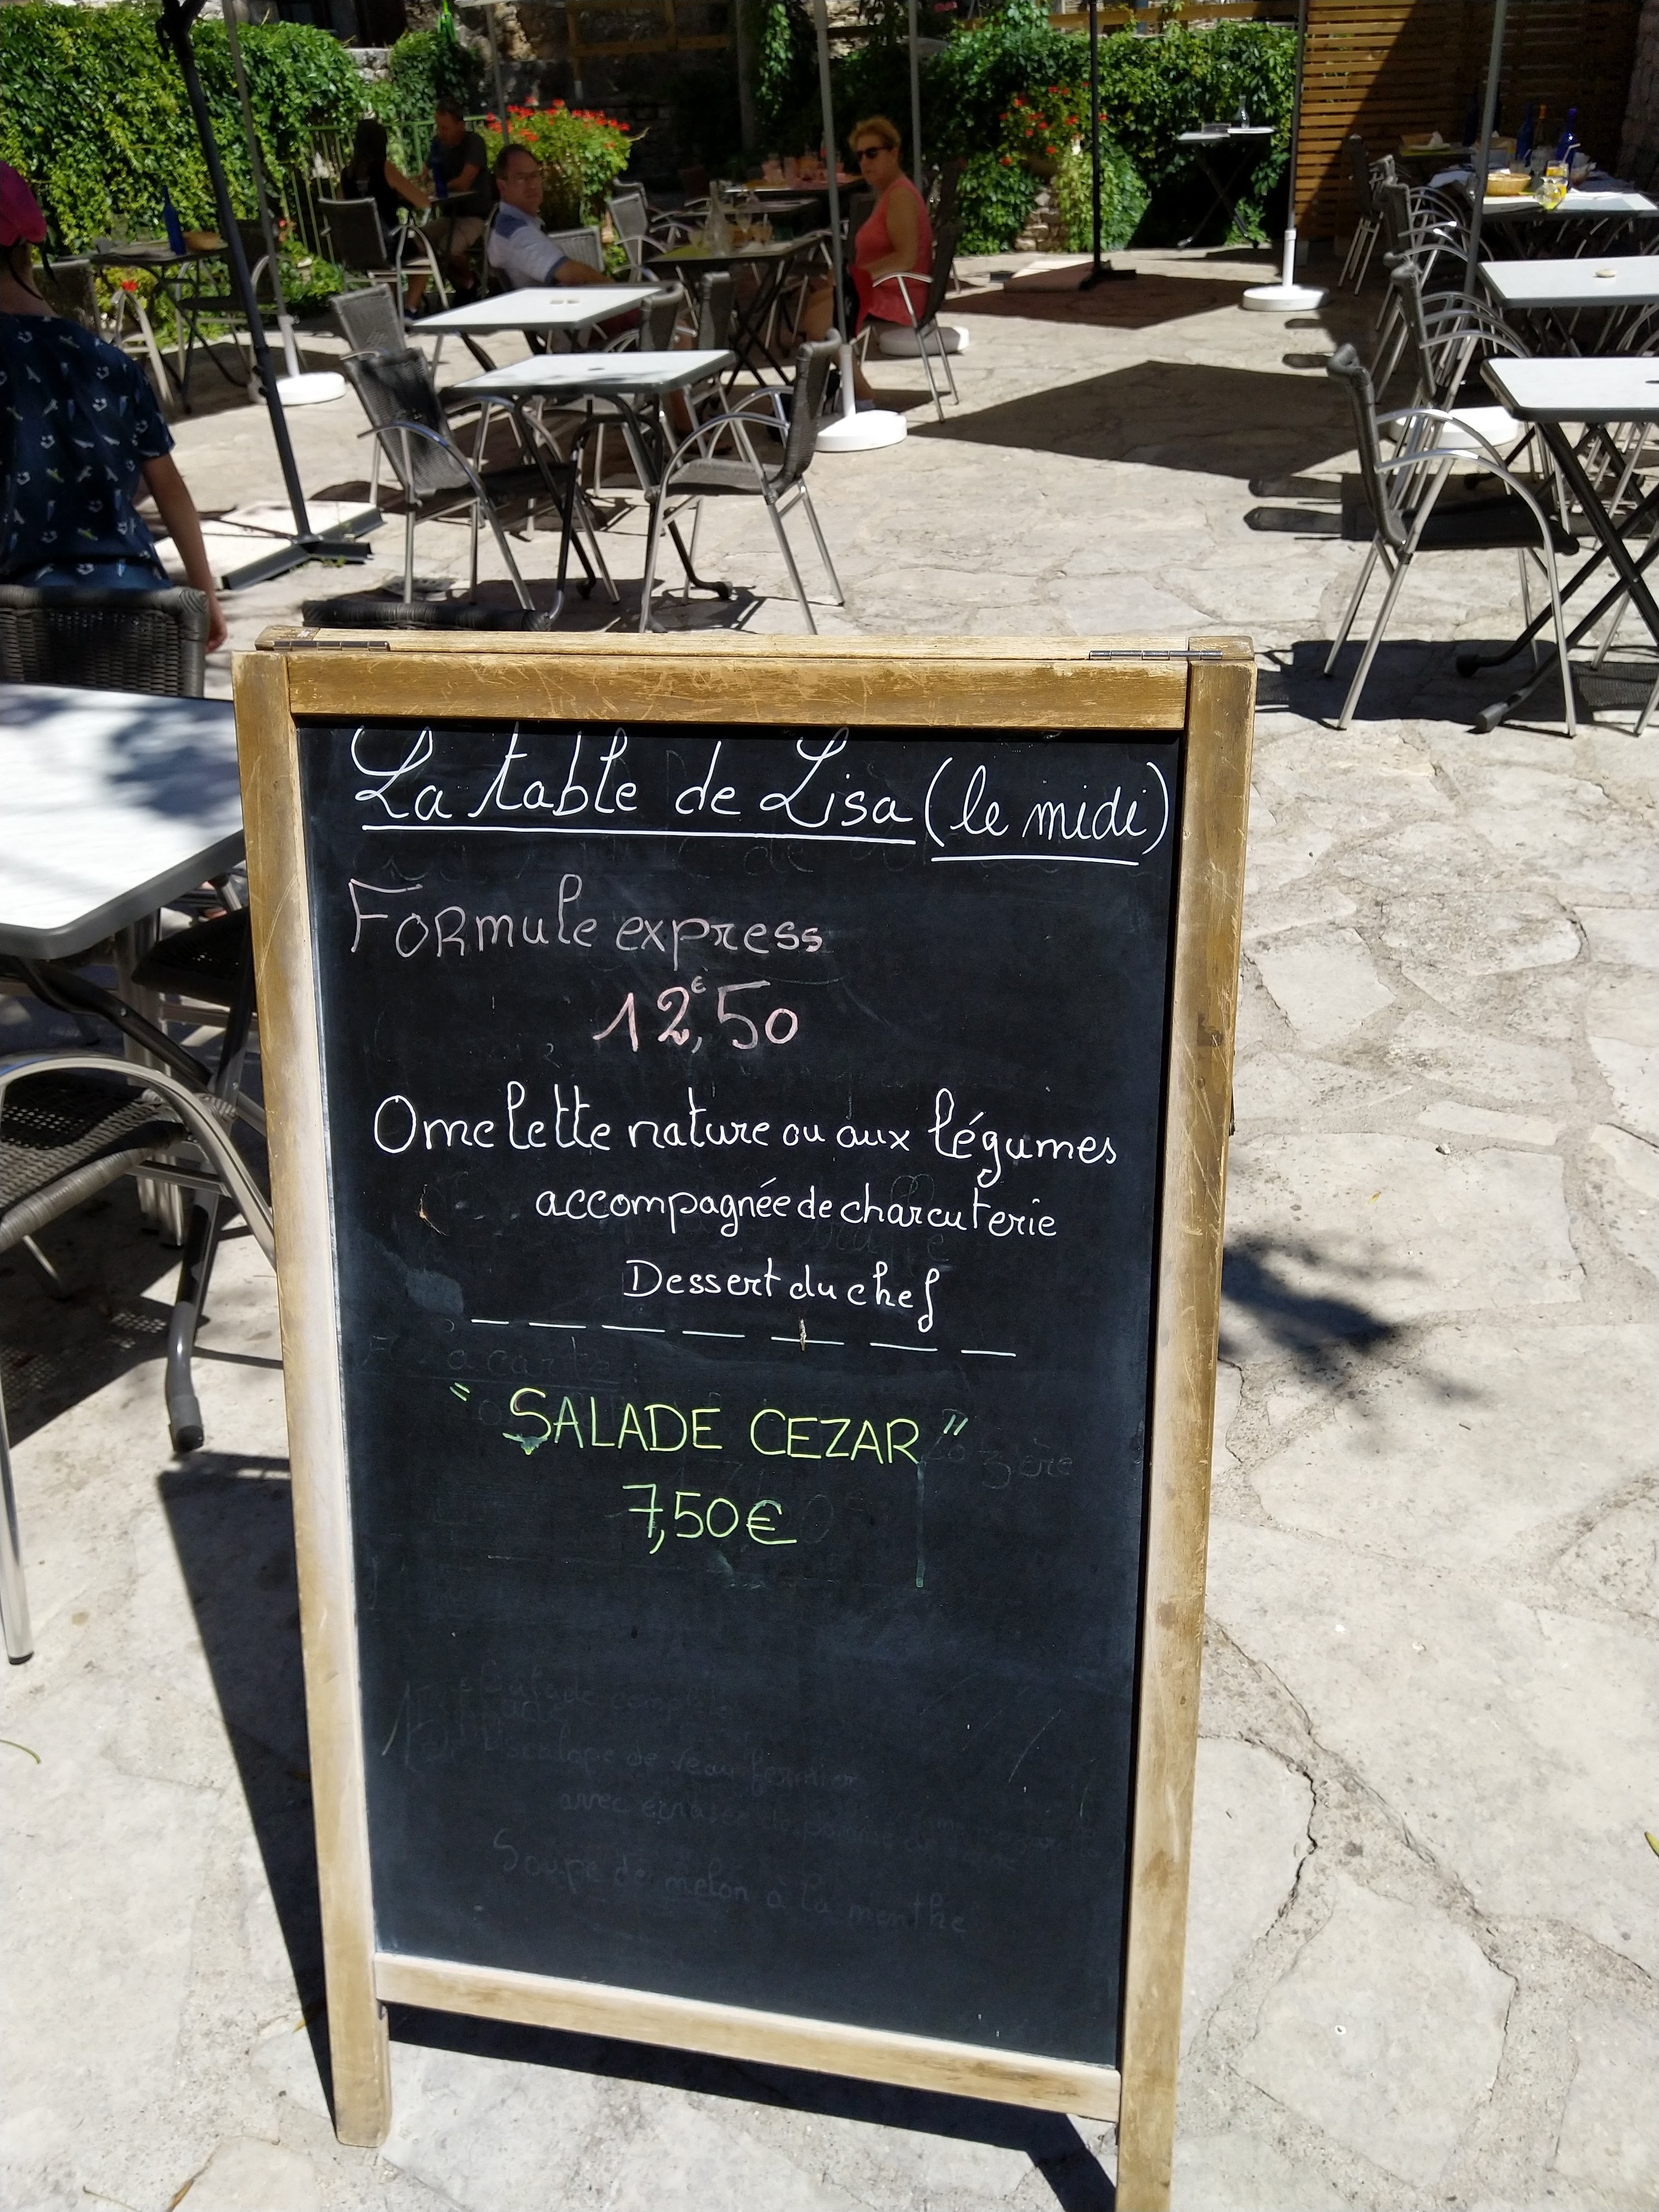 La table de Lisa (le midi)
Formule express
12,€50
Omelette nature ou aux légumes
accompagnée de charcuterie
Dessert du chef
"SALADE CEZAR"
7,50€
Soupe de melon à la menthe